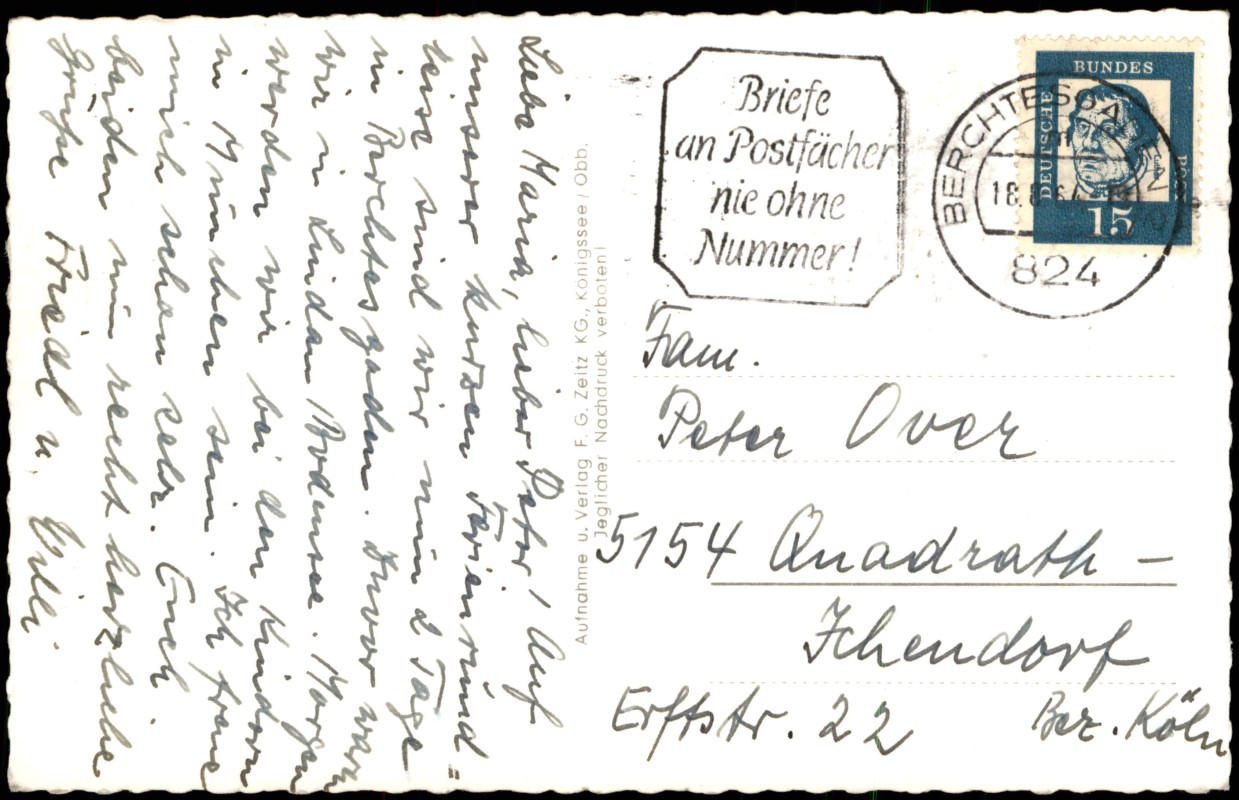 Liebe Maria, lieber Peter! Auf
unserer kurzen Ferienrund=
reise sind wir nun 2 Tage
in Berchtesgaden. Zuvor warn
wir in Lindau Bodensee. Morgen
werden wir bei den Kindern
in München sein. Ich freue
mich schon sehr. Euch
beiden nun recht herzliche
Grüße Friedl u. Willi
Aufnahme u. Verlag F. G. Zeitz KG., Königssee / Obb.
Jeglicher Nachdruck verboten!
Briefe
an Postfächer
nie ohne
Nummer!
BERCHTESGADEN
824
DEUTSCHE
BUNDES
POST
15
Fam.
Peter Over
5154 Quadrath-
Ichendorf
Erftstr. 22 Bez. Köln